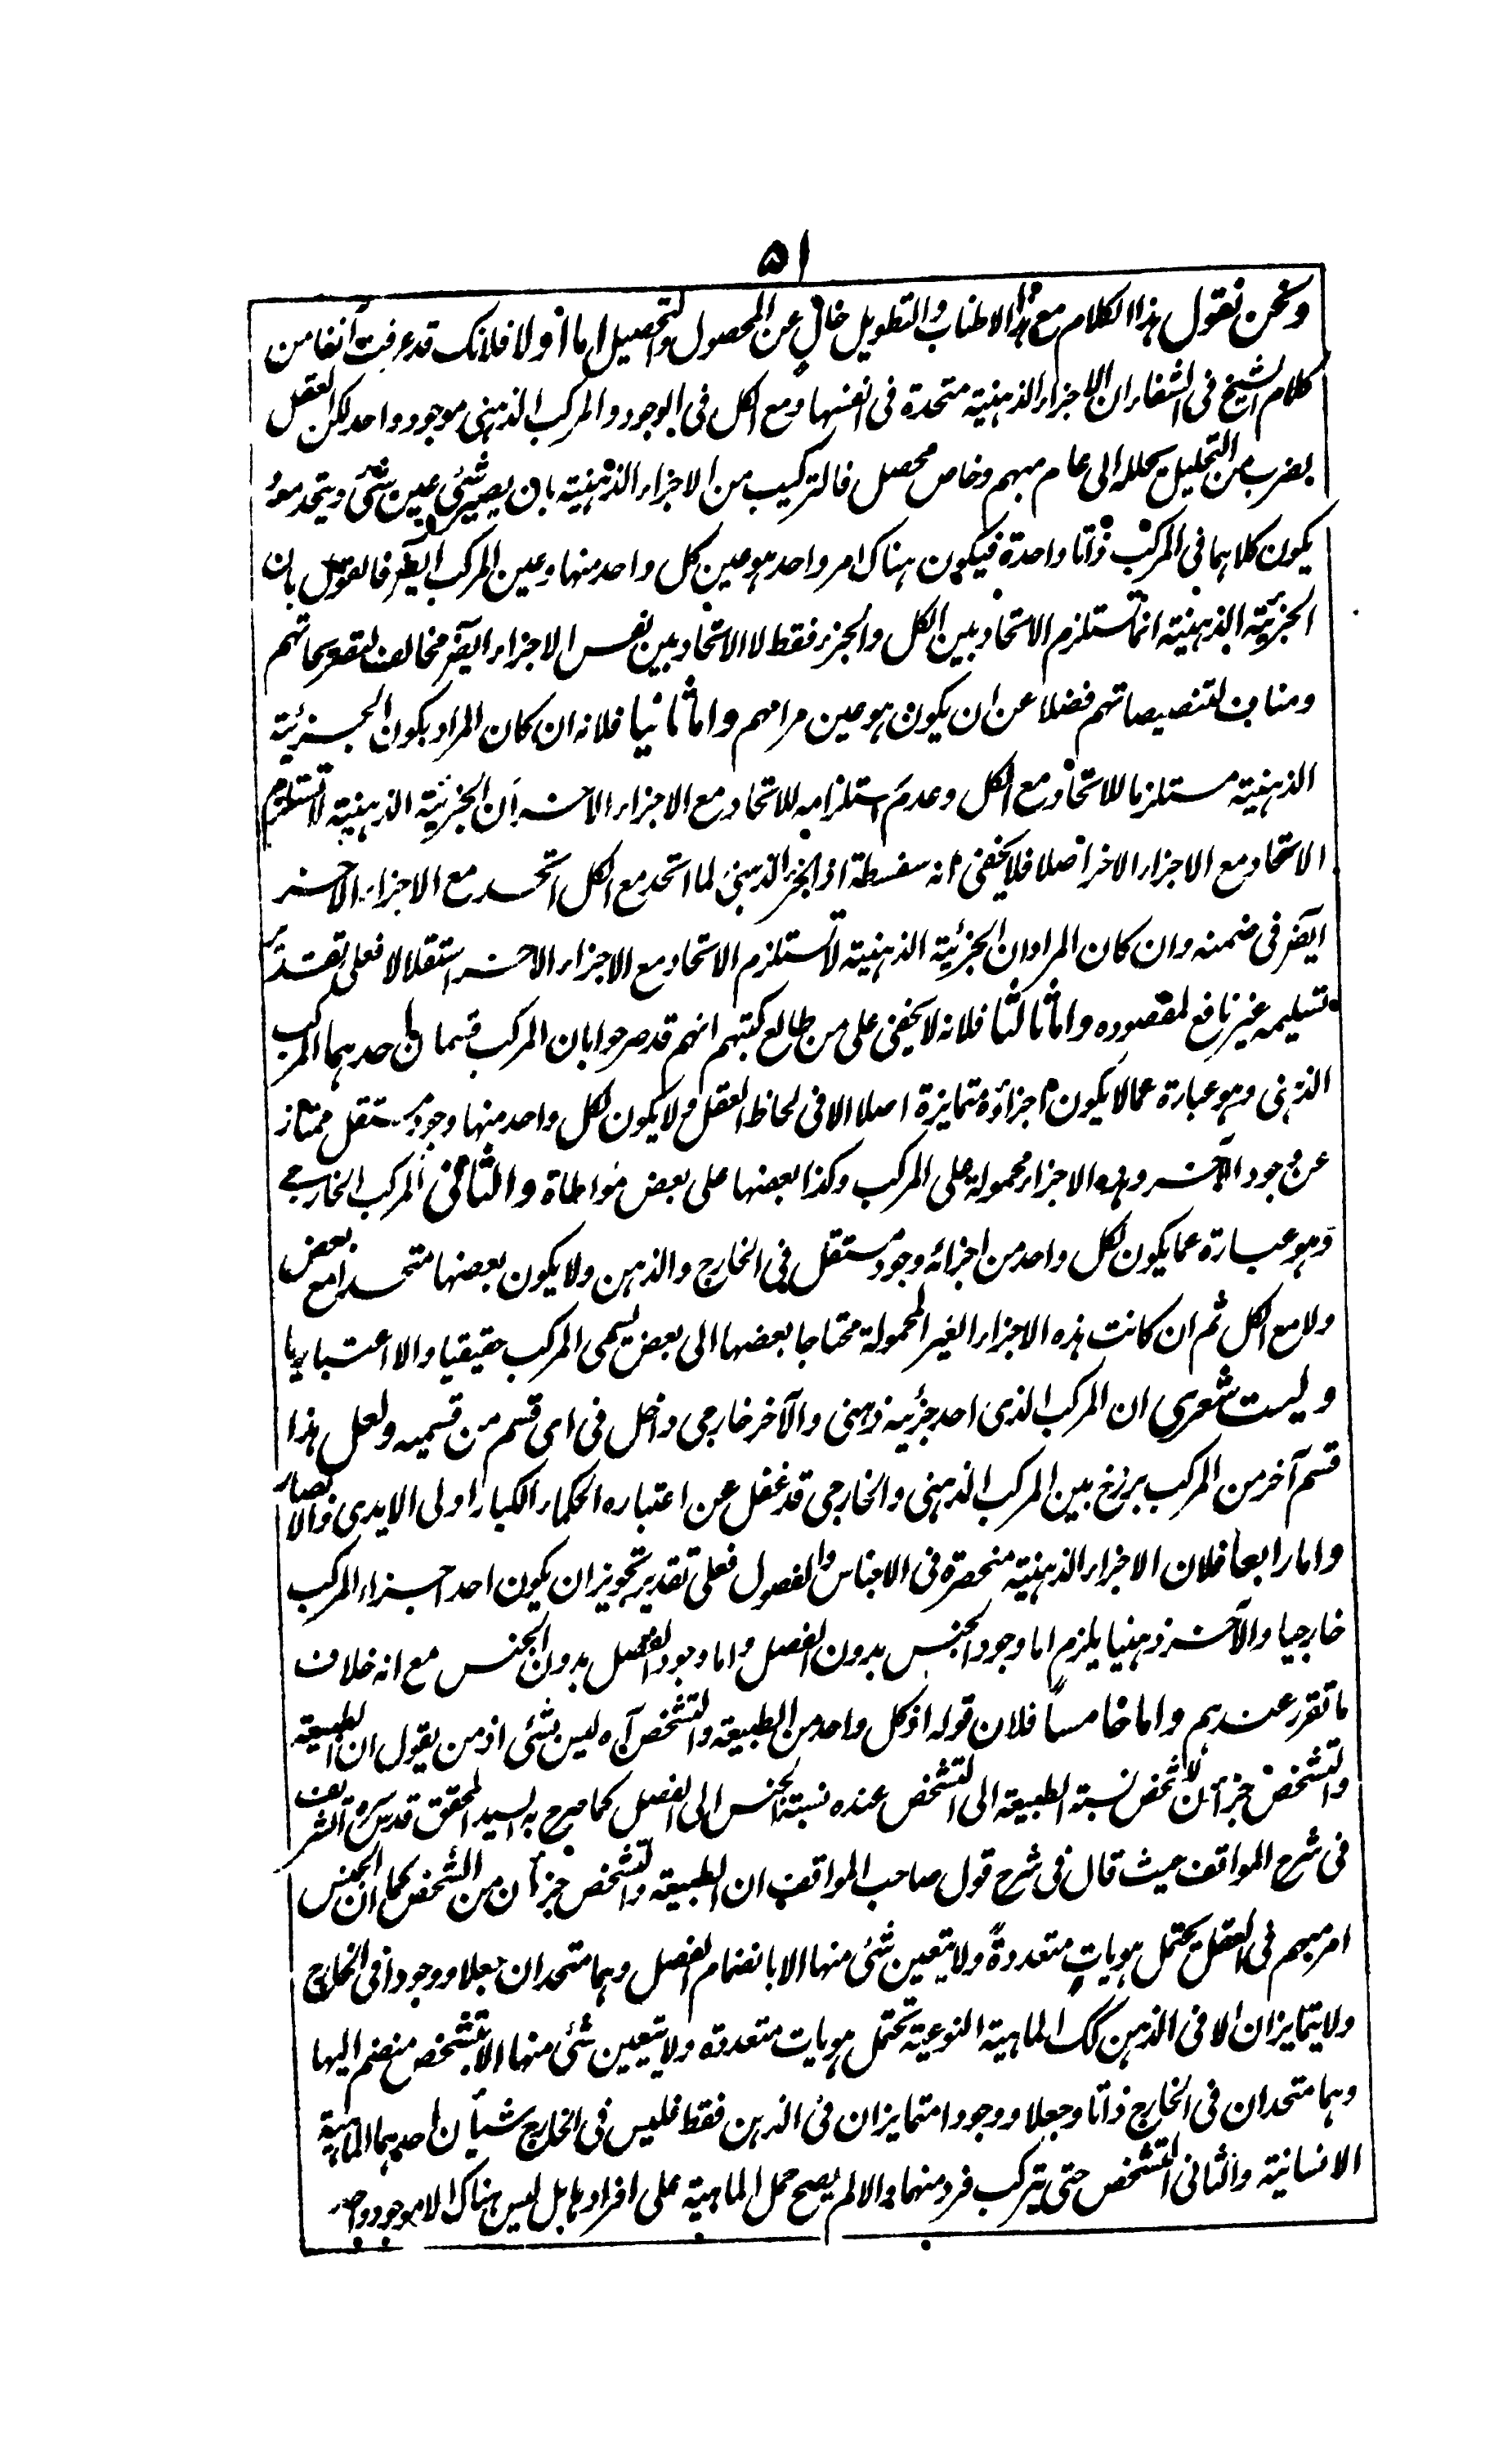 ٥١
ونحن نقول هذا الكلام مع هذا الاطناب والتطويل خال عن المحصول والتحصيل اما اولا فلانك قد عرفت آنفا من
كلام الشيخ فى الشفاء ان الاجزاء الذهنية متحدة فى انفسها ومع الكل فى الوجود والمركب الذهنى موجود واحد لكن العقل
بضرب من التحليل يحلله الى عام مبهم وخاص محصل فالتركيب من الاجزاء الذهنية بان يصير شئ عين شئ ويتحد معه
يكون كلاهما فى المركب ذاتا واحدة فيكون هناك امر واحد هو عين كل واحد منها وعين المركب ايضا فالقول بان
الجزئية الذهنية انما تستلزم الاتحاد بين الكل والجزء فقط لا الاتحاد بين نفس الاجزاء ايضا مخالف لتصريحاتهم
ومناف لتنصيصاتهم فضلا عن ان يكون هو عين مرامهم واما ثانيا فلانه ان كان المراد بكون الجزئية
الذهنية مستلزما للاتحاد مع الكل وعدم استلزامه للاتحاد مع الاجزاء الاخر ان الجزئية الذهنية لا تستلزم
الاتحاد مع الاجزاء الاخر اصلا فلا يخفى انه سفسطة اذ الجزء الذهنى لما اتحد مع الكل اتحد مع الاجزاء الاخر
ايضا فى ضمنه وان كان المراد ان الجزئية الذهنية لا تستلزم الاتحاد مع الاجزاء الاخر استقلالا فعلى تقدير
تسليمه غير نافع لمقصوده واما ثالثا فلانه لا يخفى على من طالع كتبهم انهم قد صرحوا بان المركب قسمان احدهما المركب
الذهنى وهو عبارة عما لا يكون اجزاؤه متمايزة اصلا الا فى لحاظ العقل ولا يكون لكل واحد منها وجود مستقل ممتاز
عن وجود الآخر وهذه الاجزاء محمولة على المركب وكذا بعضها على بعض مواطاة والثانى المركب الخارجى
وهو عبارة عما يكون لكل واحد من اجزائه وجود مستقل فى الخارج والذهن ولا يكون بعضها متحدا مع بعض
ولا مع الكل ثم ان كانت هذه الاجزاء الغير المحمولة محتاجا بعضها الى بعض يسمى المركب حقيقيا والا اعتباريا
وليت شعرى ان المركب الذى احد جزئيه ذهنى والآخر خارجى داخل فى اى قسم من قسميه ولعل هذا
قسم آخر من المركب برزخ بين المركب الذهنى والخارجى قد غفل عن اعتباره الحكماء الكبار اولى الايدى والابصار
واما رابعا فلان الاجزاء الذهنية منحصرة فى الاجناس والفصول فعلى تقدير تجويز ان يكون احد اجزاء المركب
خارجيا والآخر ذهنيا يلزم اما وجود الجنس بدون الفصل واما وجود الفصل بدون الجنس مع انه خلاف
ما تقرر عندهم واما خامسا فلان قوله اذ كل واحد من الطبيعة والتشخص آه ليس بشئ اذ من يقول ان الطبيعة
والتشخص جزآن لشخص نسبة الطبيعة الى التشخص عنده نسبة الجنس الى الفصل كما صرح به السيد المحقق قدس سره الشريف
فى شرح المواقف حيث قال فى شرح قول صاحب المواقف ان الطبيعة والتشخص جزآن من الشخص كما ان الجنس
امر مبهم فى العقل يحتمل هويات متعددة ولا يتعين شئ منها الا بانضمام الفصل وهما متحدان جعلا ووجودا فى الخارج
ولا يتمايزان الا فى الذهن كك الماهية النوعية تحتمل هويات متعددة ولا يتعين شئ منها الا بتشخص منضم اليها
وهما متحدان فى الخارج ذاتا وجعلا ووجودا متمايزان فى الذهن فقط فليس فى الخارج شيأن احدهما الماهية
الانسانية والثانى التشخص حتى يتركب فرد منهما والا لم يصح حمل الماهية على افرادها بل ليس هناك الا موجود واحد